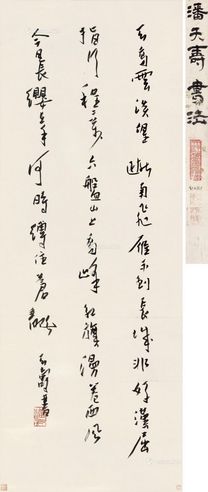 潘天壽書法
天高雲淡望斷南飛雁不到長城非好漢屈
指行程二萬六盤山上高峰紅旗漫卷西風
今日長纓在手何時縛住蒼龍 天壽書